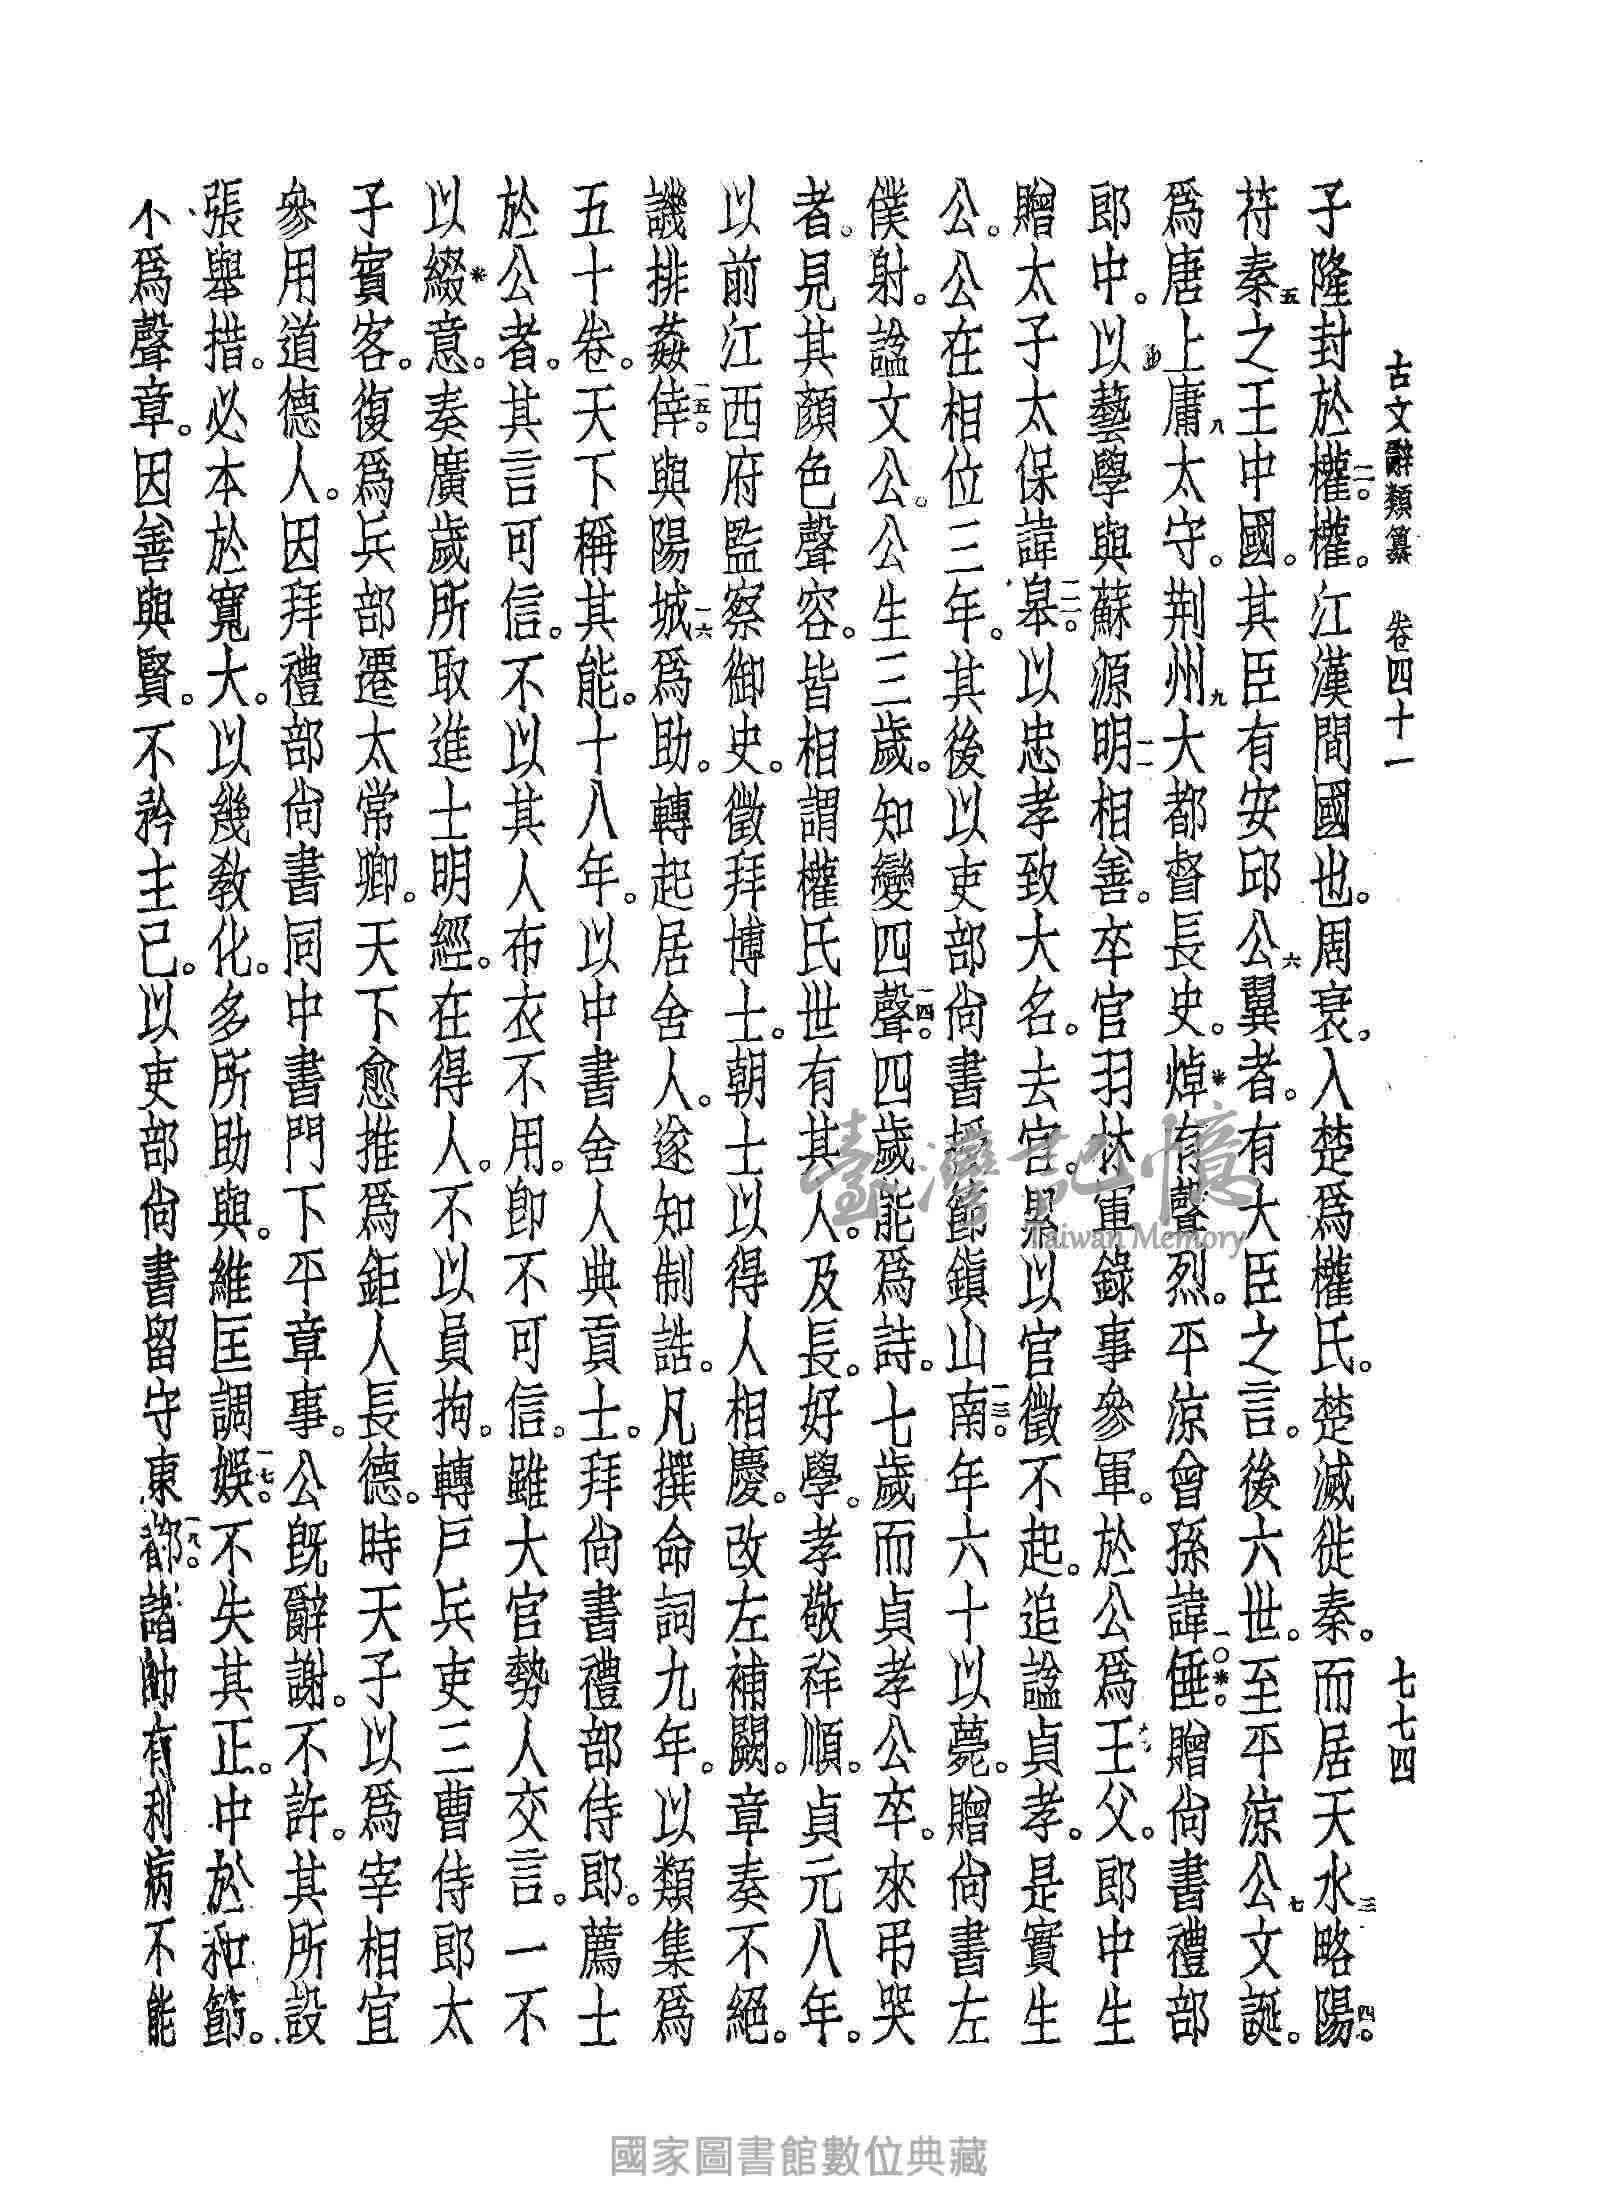 古文辭類纂 卷四十一 七七四
子隆封於權二。權。江漢間國也。周衰。入楚爲權氏。楚滅徙秦。而居天水三略陽四。
苻秦五之王中國。其臣有安邱公六翼者。有大臣之言。後六世。至平涼公七文誕。
爲唐上庸八太守。荆州九大都督長史。焯※有聲烈。平涼曾孫諱一〇倕※。贈尙書禮部
郎中。以藝學與蘇源明一一相善。卒官羽林軍錄事參軍。於公爲王父。郎中生
贈太子太保諱皋一二。以忠孝致大名。去官。累以官徵不起。追諡貞孝。是實生
公。公在相位三年。其後以吏部尙書授節鎭山南一三。年六十以薨。贈尙書左
僕射。諡文公。公生三歲。知變四聲一四。四歲能爲詩。七歲而貞孝公卒。來弔哭
者。見其顏色聲容。皆相謂權氏世有其人。及長。好學。孝敬祥順。貞元八年。
以前江西府監察御史。徵拜博士。朝士以得人相慶。改左補闕。章奏不絕。
譏排姦倖一五。與陽城一六爲助。轉起居舍人。遂知制誥。凡撰命詞九年。以類集爲
五十卷。天下稱其能。十八年。以中書舍人典貢士。拜尙書禮部侍郎。薦士
於公者。其言可信。不以其人布衣不用。卽不可信。雖大官勢人交言。一不
以綴※意。奏廣歲所取進士明經。在得人。不以員拘。轉戶兵吏三曹侍郎太
子賓客。復爲兵部。遷太常卿。天下愈推爲鉅人長德。時天子以爲宰相宜
參用道德人。因拜禮部尙書同中書門下平章事。公旣辭謝。不許。其所設
張舉措。必本於寬大。以幾敎化。多所助與。維匡調娛一七。不失其正。中於和節。
不爲聲章。因善與賢。不矜主己。以吏部尙書留守東都一八。諸帥有利病不能
臺灣記憶
Taiwan Memory
國家圖書館數位典藏